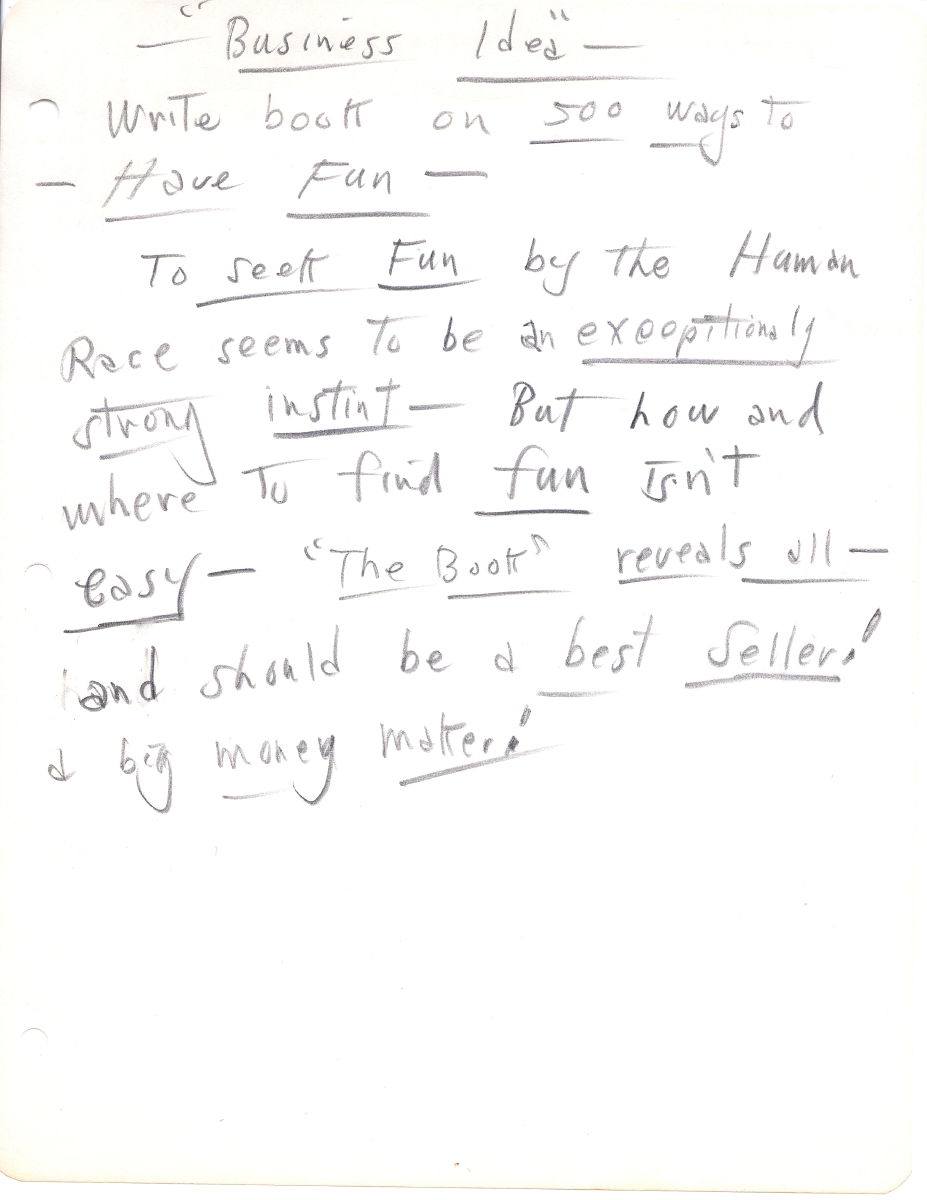 — "Business Idea" —
Write book on 500 ways to
— Have Fun —
To seek Fun by the Human
Race seems to be an exeoptitionaly
strong instint — But how and
where to find fun isn't
easy — "The Book" reveals all —
and should be a best seller!
a big money maker!